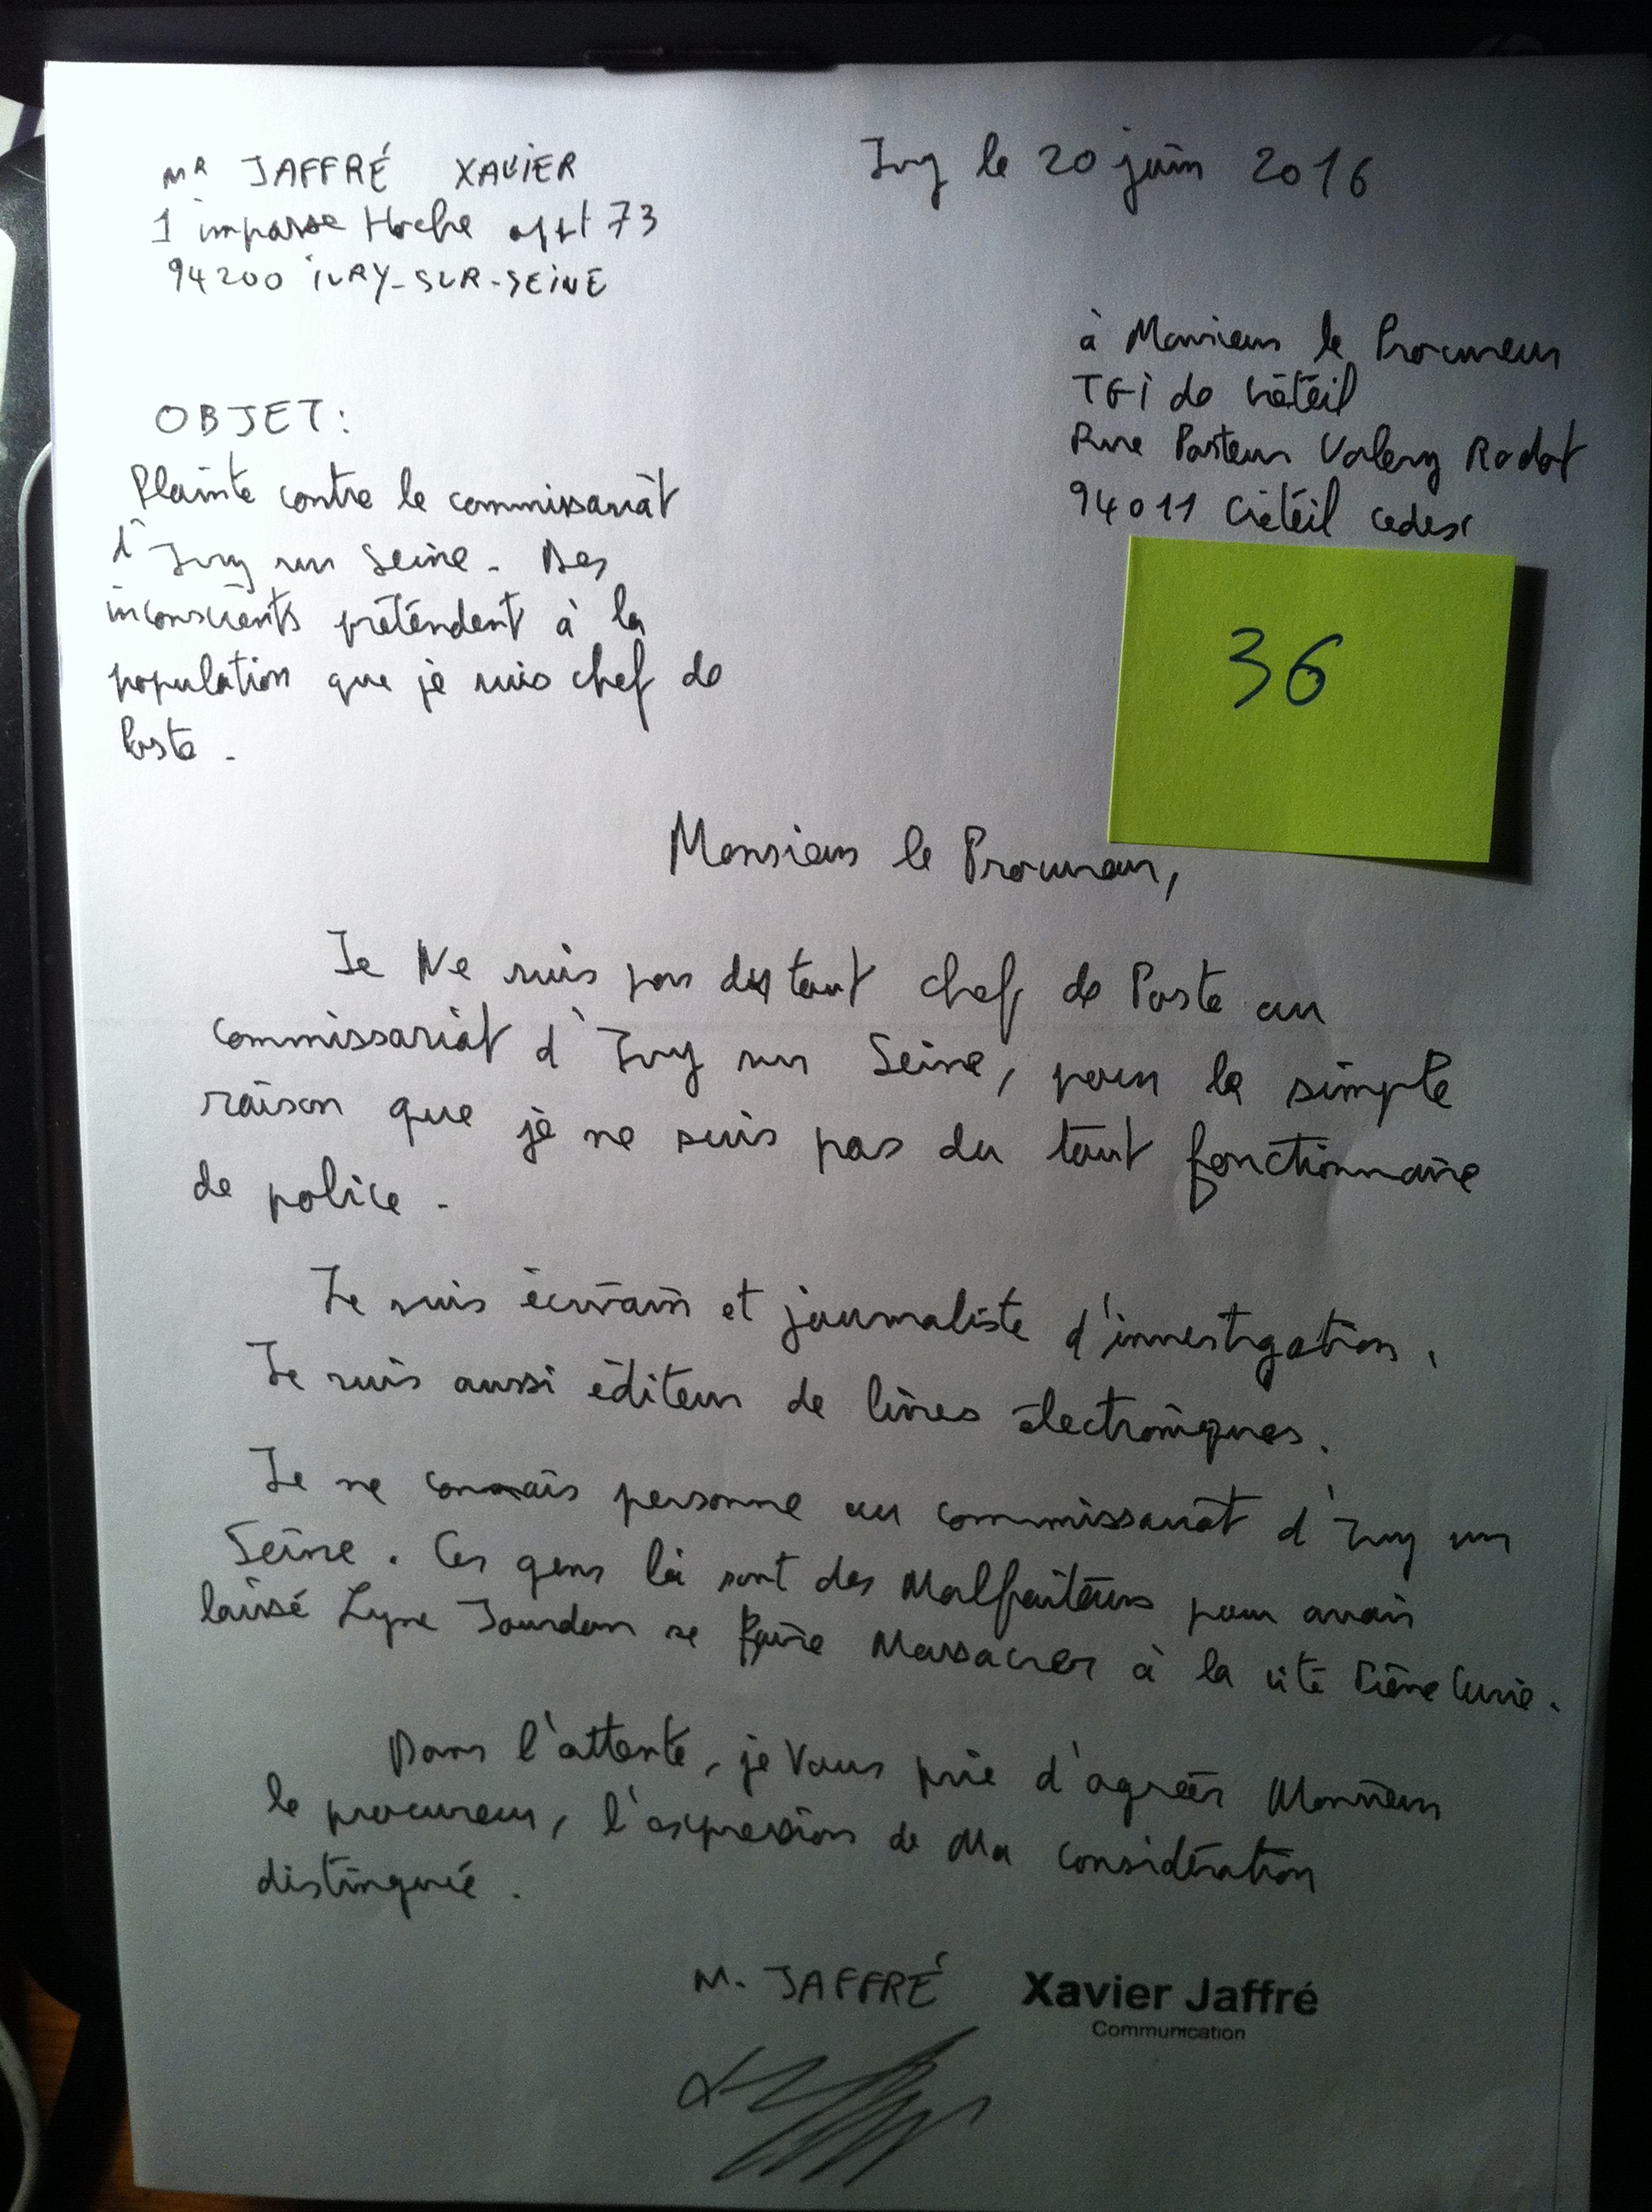 MR JAFFRÉ XAVIER
1 impasse Hoche appt 73
94200 IVRY-SUR-SEINE
Ivry le 20 juin 2016
à Monsieur le Procureur
TGI de Créteil
Rue Pasteur Valery Radot
94011 Créteil cedex
OBJET:
Plainte contre le commissariat
d'Ivry sur Seine. Des
inconscients prétendent à la
population que je suis chef de
Poste.
36
Monsieur le Procureur,
Je Ne suis pas du tout chef de Poste au
commissariat d'Ivry sur Seine, pour la simple
raison que je ne suis pas du tout fonctionnaire
de police.
Je suis écrivain et journaliste d'investigation.
Je suis aussi éditeur de livres électroniques.
Je ne connais personne au commissariat d'Ivry sur
Seine. Ces gens là sont des Malfaiteurs pour avoir
laissé Lyne Jourdan se faire Massacrer à la cité Pierre Curie.
Dans l'attente, je Vous prie d'agréer Monsieur
le procureur, l'expression de Ma considération
distinguée.
M. JAFFRÉ
Xavier Jaffré
Communication